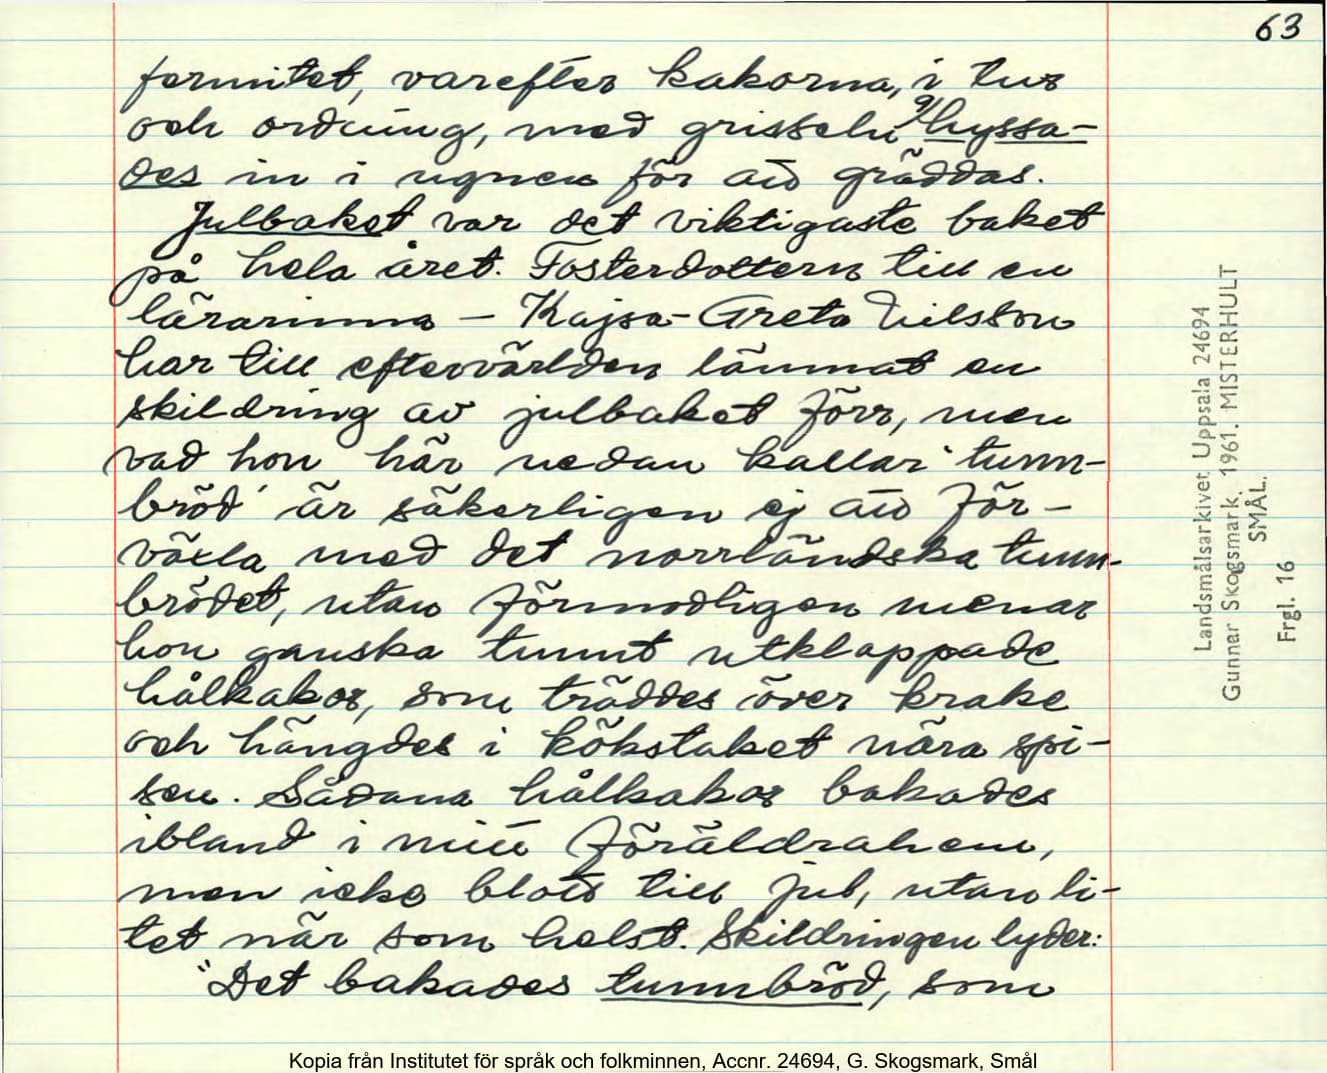 63
formitet, varefter kakorna, i tur
och ordning, med grisseln 9/ hyssa-
des in i ugnen för att gräddas.
Julbaket var det viktigaste baket
på hela året. Fosterdottern till en
lärarinna – Kajsa-Greta Nilsson
har till eftervärlden lämnat en
skildring av julbaket förr, men
vad hon här nedan kallar "tunn-
bröd" är säkerligen ej att för-
växla med det norrländska tunn-
brödet, utan förmodligen menar
hon ganska tunnt utklappade
hålkakor, som träddes över krake
och hängdes i kökstaket nära spi-
sen. Sådana hålkakor bakades
ibland i mitt föräldrahem,
men icke blott till jul, utan li-
tet när som helst. Skildringen lyder:
"Det bakades tunnbröd, som
Landsmålsarkivet Uppsala 24694
Gunnar Skogsmark. 1961. MISTERHULT
SMÅL.
Frgl. 16
Kopia från Institutet för språk och folkminnen, Accnr. 24694, G. Skogsmark, Smål